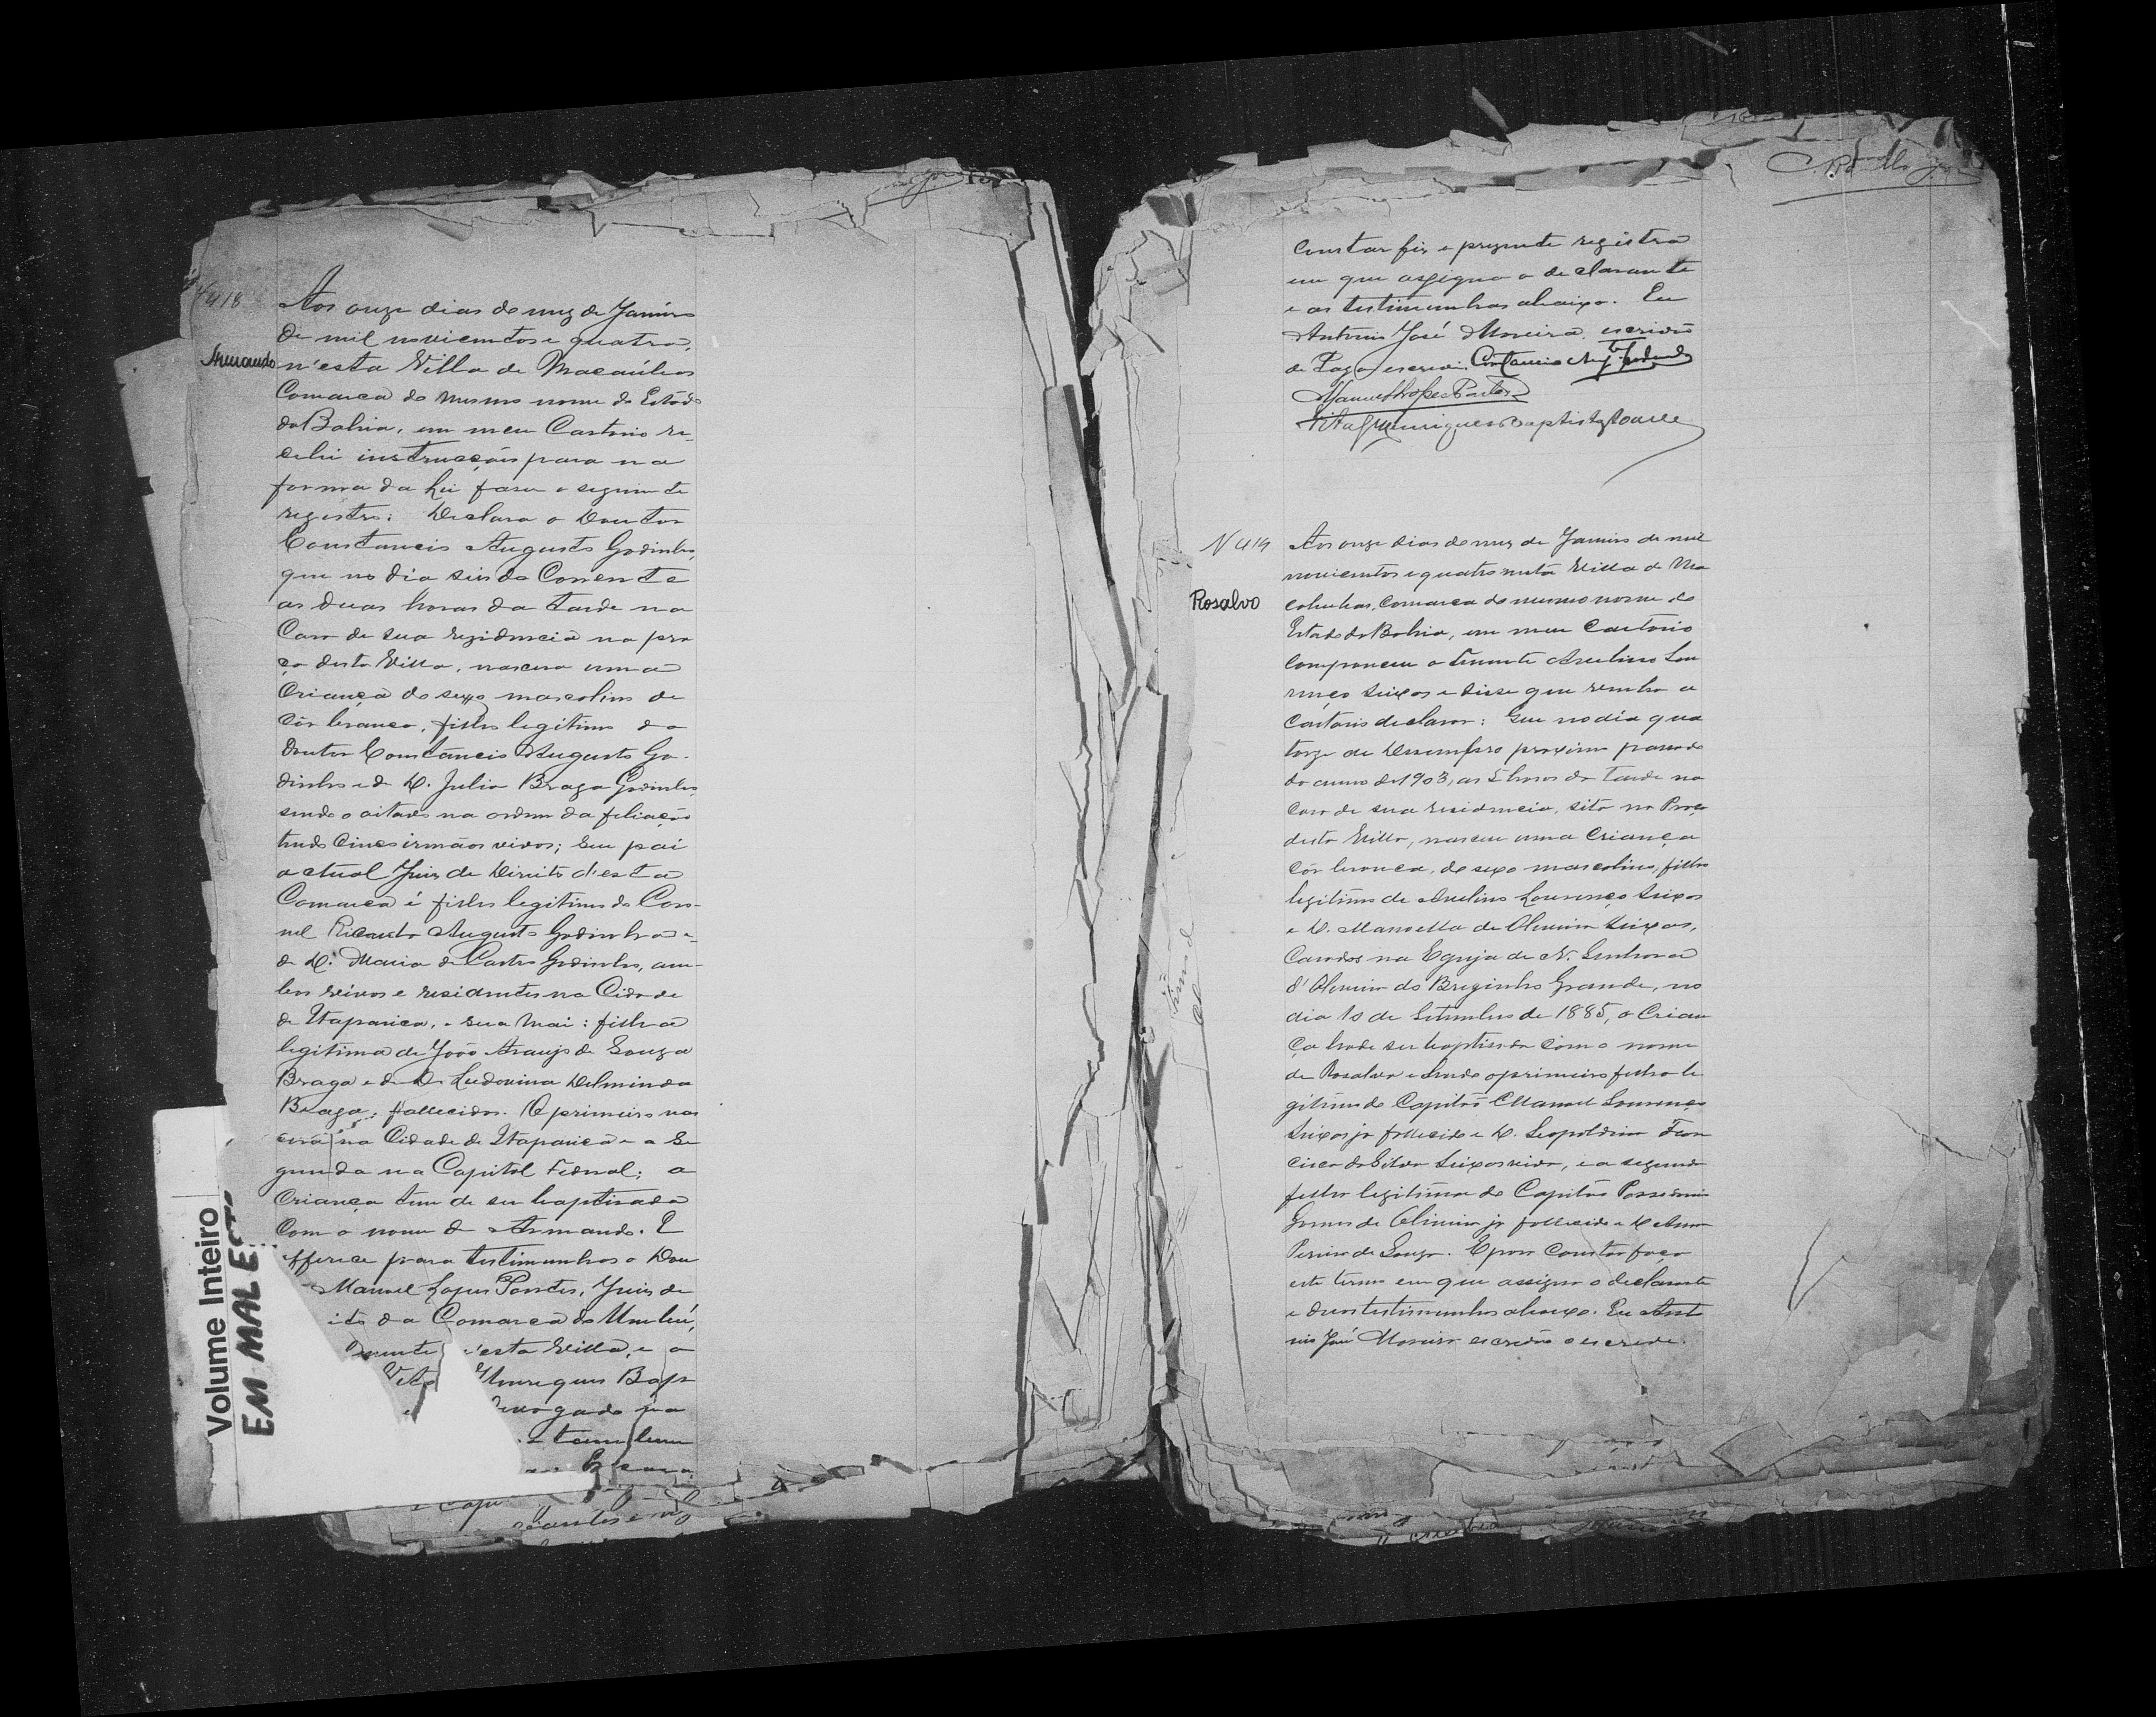 418
Aos onze dias do mez de Janeiro
de mil novicentos e quatro,
Armando
n'esta Villa de Macaúbas
Comarca do mesmo nome do Estado
da Bahia, em meu Cartorio re-
cebi instrucções para na
forma da Lei faser o seguinte
registro: Declara o Doutor
Constancio Augusto Godinho,
que no dia seis do Corrente
as duas horas da tarde na
Casa de sua rezidencia na pra
ça desta Villa, nascera uma
Criança do sexo mascolino de
Côr branca, filho legitimo do
Doutor Constâncio Augusto Go-
dinho e de D. Julia Braga Godinho,
sendo o oitavo na ordem da filiação
tendo cinco irmãos vivos; Seu pai
actual Juiz de Direito d'esta
Comarca é filho legitimo do Coro-
nel Ricardo Augusto Godinho e
de D. Maria de Castro Godinho, am-
bos vivos e residentes na Cidade
de Itaparica, e sua Mai: filha
legitima de João Araujo de Souza
Braga e de D. Ludovina Delminda
Braga, fallecidos. O primeiro nas
ceu na Cidade de Itaparica e a Se
gunda na Capital Federal; a
Criança tem de ser baptisada
Com o nome de Armando. E
offerece para testimunhas o Dou
Manoel Lopes Pontes, Juiz de
ito da Comarca do Umbú,
d'esta Villa, e o
Henriques Bap
gado na
tambem
para
Volume Inteiro
EM MAL EST
Constar fiz o prezente registro
em que assigna o declarante
e as testimunhas abaixo. Eu
Antonio José Moreira escrivão
de Paz o escrevi. Constancio Aug.to Godinho
Manuel Lopes Pontes
Vital Henriques Baptista Soares
N 419
Aos onze dias do mez de Janeiro de mil
novicentos e quatro nesta Villa de Ma
Rosalvo
cahubas, Comarca do mesmo nome do
Estado da Bahia, em meu Cartorio
Compareceu o Tenente Avelino Lou
renço Seixas e disse que vinha a
Cartorio declarar: Que no dia qua
torze de Desembro proximo passado
do anno de 1903, as 5 horas da Tarde na
Casa de sua residencia, sita na Praça
desta Villa, nasceu uma Criança
Côr branca, do sexo mascolino, filho
legitimo de Avelino Lourenço Seixas
e D. Manoella de Oliveira Seixas,
Casados na Egreja de N. Senhora
d'Oliveira do Brejinho Grande, no
dia 10 de Setembro de 1885, a Crian
ça hade ser baptisada com o nome
de Rosalvo e sendo o primeiro filho le
gitimo do Capitão Manoel Lourenço
Seixas ja fallecido e D. Leopoldina Fran
cisca da Silva Seixas viva, e a segunda
filha legitima do Capitão Possidonio
Gomes de Oliveira ja fallecido e D. Anna
Pereira de Souza. E para Constar faço
este termo em que assigna o declarante
e duas testimunhas abaixo. Eu Anto
nio José Moreira escrivão o escrevi.